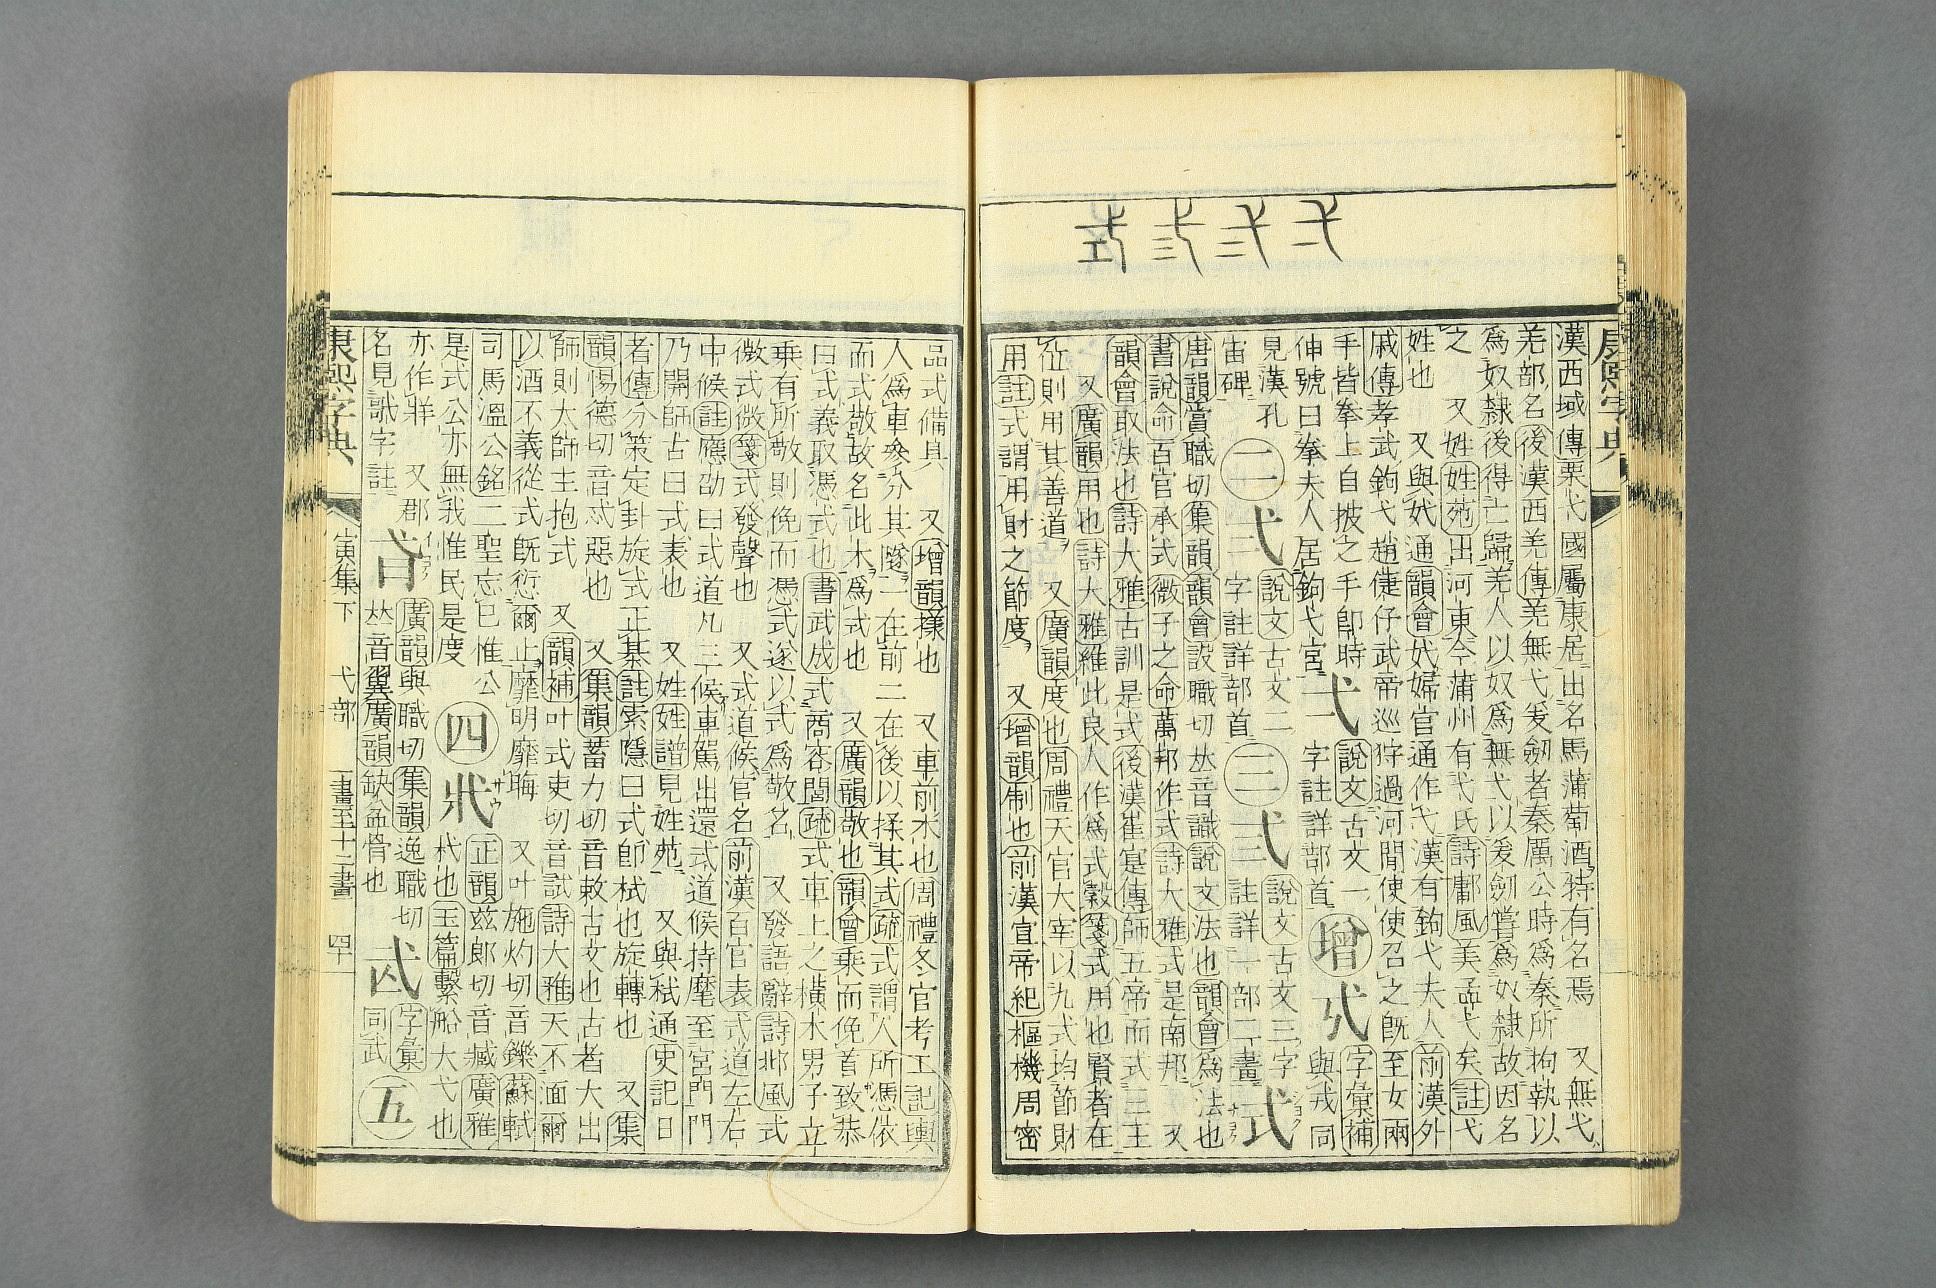 漢西域傳栗弋國屬康居出名馬蒲萄酒特有名焉 又無弋
羌部名後漢西羌傳羌無弋爰劒者秦厲公時爲秦所拘執以
爲奴隸後得亡歸羌人以奴爲無弋以爰劒嘗爲奴隸故因名
之 又姓姓苑出河東今蒲州有弋氏詩鄘風美孟弋矣註弋
姓也 又與妷通韻會妷婦官通作弋漢有鉤弋夫人前漢外
戚傳孝武鉤弋趙倢伃武帝巡狩過河閒使使召之旣至女兩
手皆拳上自披之手卽時
伸號曰拳夫人居鉤弋宮
弌
說文古文一
字註詳部首
增
與戎同
字彙補
見漢孔
宙碑
二
弍
說文古文二
字註詳部首
三
弎
說文古文三字
註詳一部二畫
式
唐韻賞職切集韻韻會設職切𠀤音識說文法也韻會爲法也
書說命百官承式微子之命萬邦作式詩大雅式是南邦 又
韻會取法也詩大雅古訓是式後漢崔寔傳師五帝而式三王
又廣韻用也詩大雅維此良人作爲式穀箋式用也賢者在
位則用其善道 又廣韻度也周禮天官大宰以九式均節財
用註式謂用財之節度 又增韻制也前漢宣帝紀樞機周密
品式備具 又增韻樣也 又車前木也周禮冬官考工記輿
人爲車參分其隧一在前二在後以揉其式疏式謂人所憑依
而式敬故名此木爲式也 又廣韻敬也韻會乘而俛首致恭
曰式義取憑式也書武成式商容閭疏式車上之橫木男子立
乘有所敬則俯而憑式遂以式爲敬名 又發語辭詩邶風式
微式微箋式發聲也 又式道候官名前漢百官表式道左右
中候註應劭曰式道凡三候車駕出還式道候持麾至宮門門
乃開師古曰式表也 又姓姓譜見姓苑 又與栻通史記日
者傳分策定卦旋式正棊註索隱曰式卽栻也旋轉也 又集
韻惕德切音忒惡也 又集韻蓄力切音敕古文也古者大出
師則太師主抱式 又韻補叶式吏切音試詩大雅天不湎爾
以酒不義從式旣愆爾止靡明靡晦 又叶施灼切音鑠蘇軾
司馬溫公銘二聖忘己惟公
是式公亦無我惟民是度
四
戕
正韻兹郎切音臧廣雅
杙也玉篇繫船大弋也
亦作牂 又郡
名見牁字註
廣韻與職切集韻逸職切
𠀤音翼廣韻缺盆骨也
字彙
同武
五
康熙字典
寅集下 弋部 一畫至十二畫 四十一